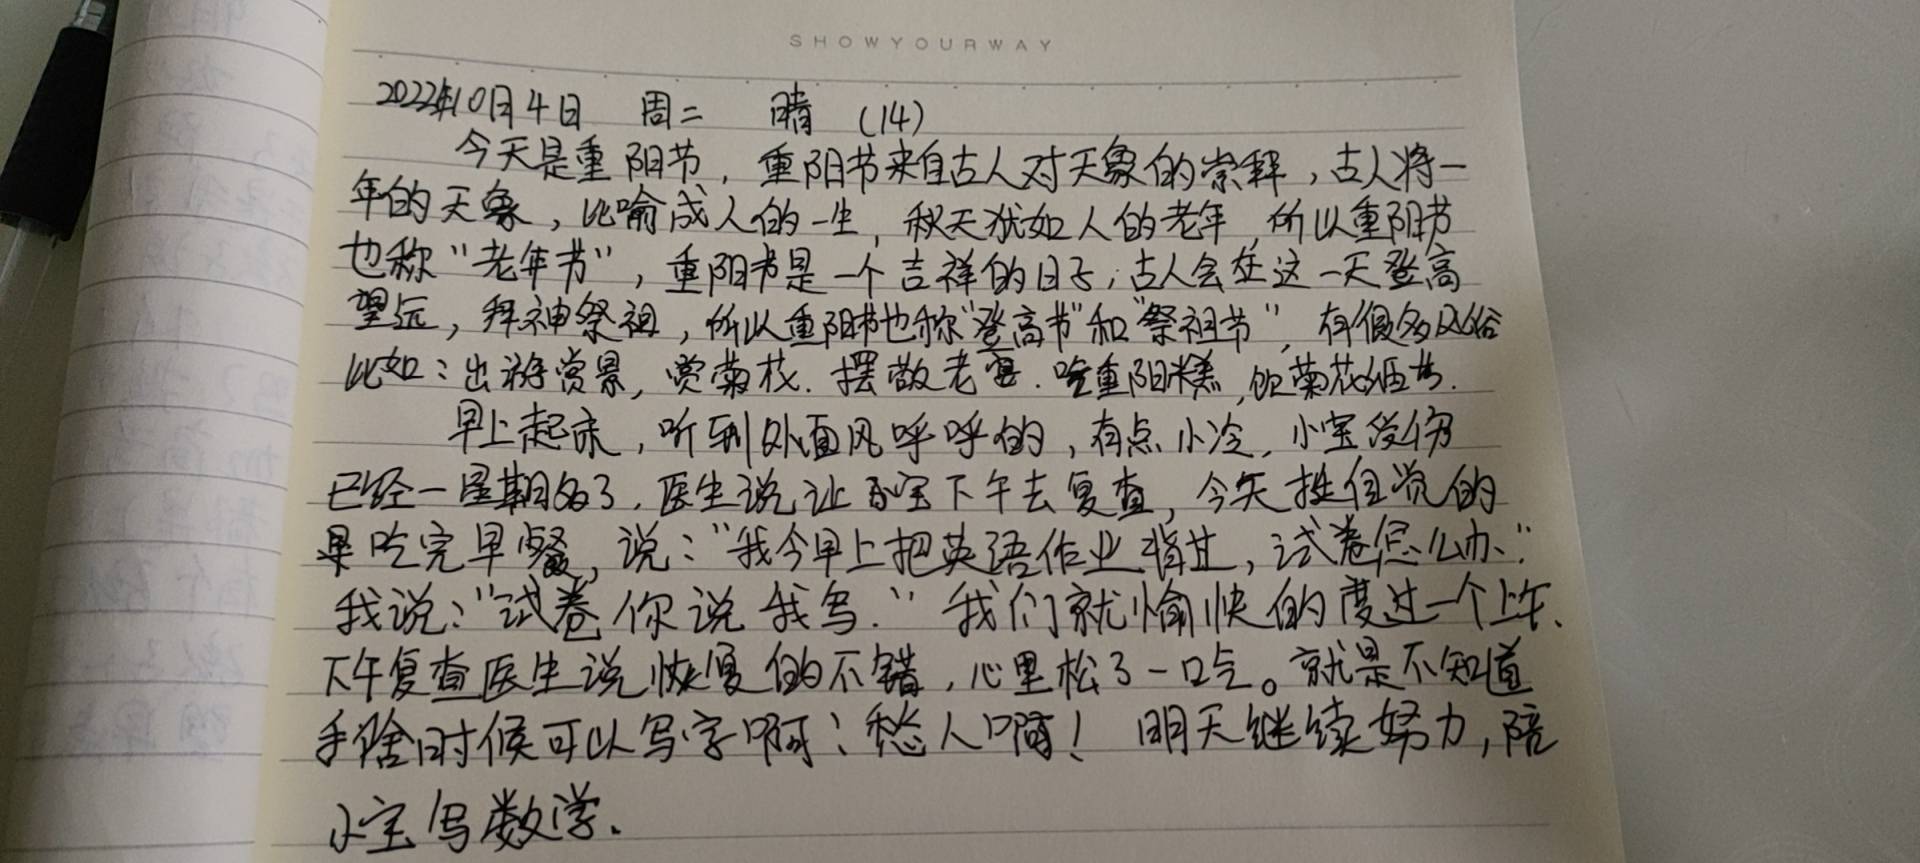 SHOWYOURWAY
2022年10月4日 周二 晴 (14)
今天是重阳节，重阳节来自古人对天象的崇拜，古人将一
年的天象，比喻成人的一生，秋天犹如人的老年，所以重阳节
也称“老年节”，重阳节是一个吉祥的日子，古人会在这一天登高
望远，拜神祭祖，所以重阳节也称“登高节”和“祭祖节”，有很多风俗
比如：出游赏景，赏菊花．摆敬老宴．吃重阳糕，饮菊花酒等．
早上起床，听到外面风呼呼的，有点小冷，小宝受伤
已经一星期多了．医生说让小宝下午去复查，今天挺自觉的
是吃完早餐，说：“我今早上把英语作业背过，试卷怎么办、”
我说：“试卷你说我写．”我们就愉快的度过一个上午．
下午复查医生说恢复的不错，心里松了一口气。就是不知道
手啥时候可以写字啊！愁人啊！明天继续努力，陪
小宝写数学．